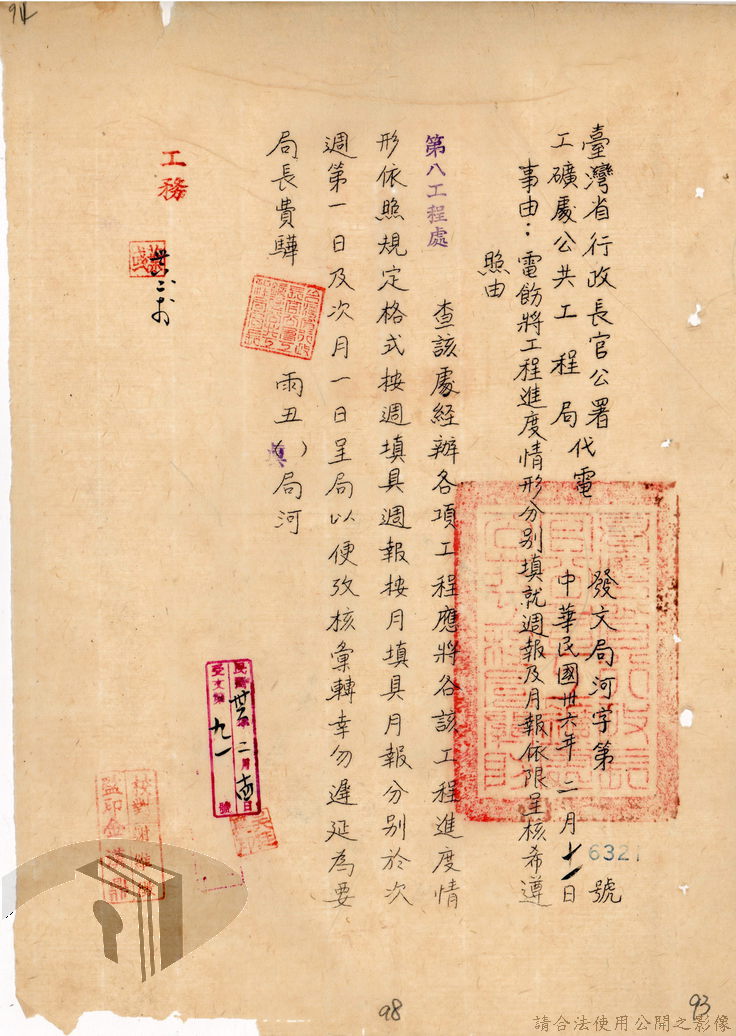 臺灣省行政長官公署
工礦處公共工程局代電
發文局河字第6321號
中華民國卅六年二月十一日
事由：電飭將工程進度情形分別填就週報及月報依限呈核希遵
照由
第八工程處
查該處經辦各項工程應將各該工程進度情
形依照規定格式按週填具週報按月填具月報分別於次
週第一日及次月一日呈局以便攷核彙轉幸勿遲延為要
局長費驊
丙丑(真)局河
民國卅六年二月日
受文號九一號
工務
校對
監印
94
98
93
請合法使用公開之影像